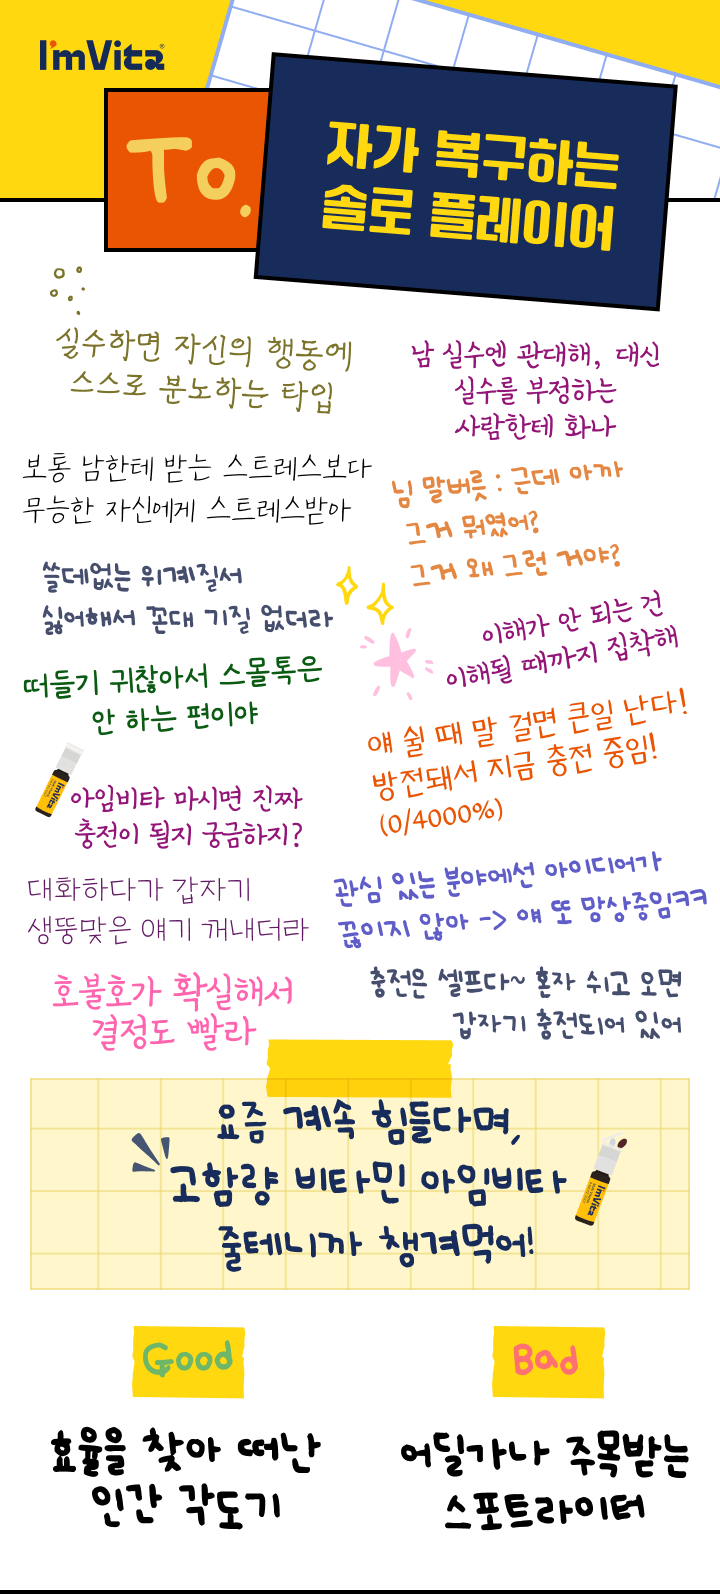 I'mVita
To.
자가 복구하는
솔로 플레이어
실수하면 자신의 행동에
스스로 분노하는 타입
남 실수엔 관대해, 대신
실수를 부정하는
사람한테 화나
보통 남한테 받는 스트레스보다
무능한 자신에게 스트레스받아
님 말버릇 : 근데 아까
그거 뭐였어?
그거 왜 그런 거야?
쓸데없는 위계질서
싫어해서 꼰대 기질 없더라
이해가 안 되는 건
이해될 때까지 집착해
떠들기 귀찮아서 스몰톡은
안 하는 편이야
얘 쉴 때 말 걸면 큰일 난다!
방전돼서 지금 충전 중임!
(0/4000%)
I'mVita
아임비타 마시면 진짜
충전이 될지 궁금하지?
대화하다가 갑자기
생뚱맞은 얘기 꺼내더라
관심 있는 분야에선 아이디어가
끊이지 않아 -> 얘 또 망상중임ㅋㅋ
호불호가 확실해서
결정도 빨라
충전은 셀프다~ 혼자 쉬고 오면
갑자기 충전되어 있어
요즘 계속 힘들다며,
고함량 비타민 아임비타
줄테니까 챙겨먹어!
I'mVita
Good
효율을 찾아 떠난
인간 각도기
Bad
어딜가나 주목받는
스포트라이터